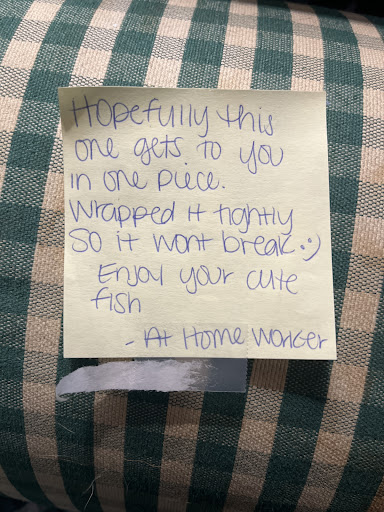 Hopefully this
one gets to you
in one piece.
Wrapped it tightly
so it wont break :)
Enjoy your cute
fish
- At Home Worker